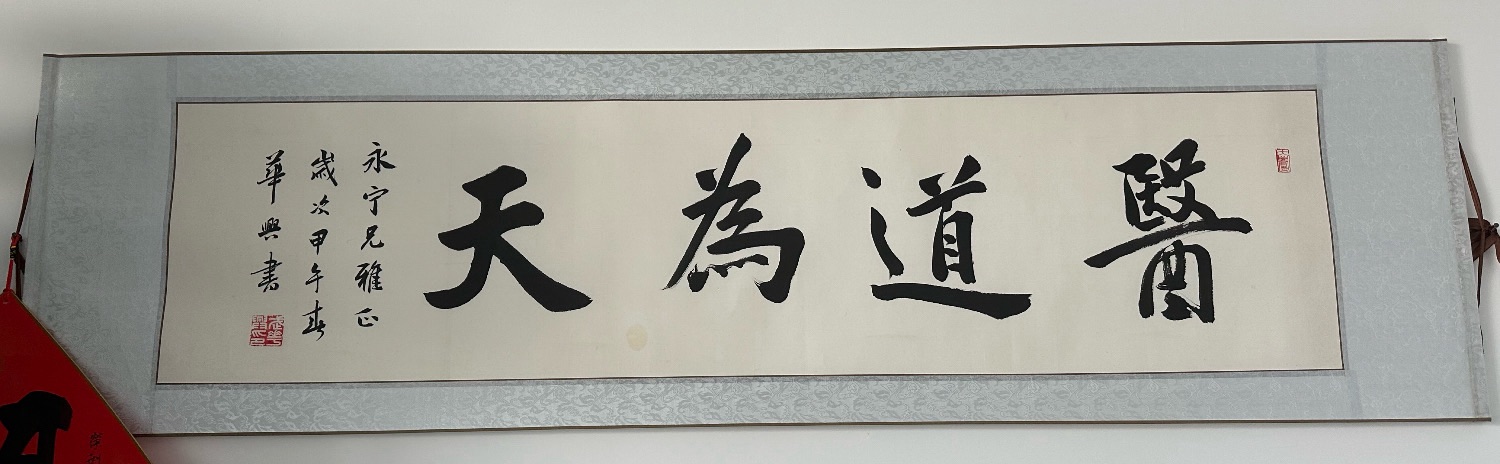 醫道為天
永宁兄雅正
歲次甲午春
華興书